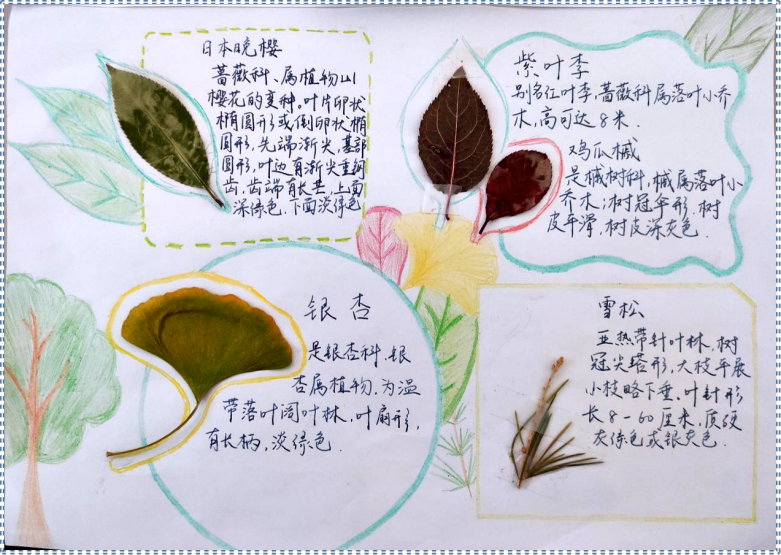 日本晚樱
蔷薇科、属植物山
樱花的变种,叶片卵状
椭圆形或倒卵状椭
圆形,先端渐尖,基部
圆形,叶边有渐尖重锯
齿,齿端有长芒,上面
深绿色,下面淡绿色
紫叶李
别名红叶李,蔷薇科属落叶小乔
木,高可达8米.
鸡瓜槭
是槭树科,槭属落叶小
乔木;树冠伞形,树
皮平滑,树皮深灰色.
银杏
是银杏科、银
杏属植物,为温
带落叶阔叶林,叶扇形,
有长柄,淡绿色.
雪松
亚热带针叶林,树
冠尖塔形,大枝平展
小枝略下垂,叶针形
长8-60厘米,质硬
灰绿色或银灰色.